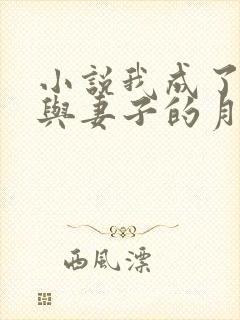 小説我成了
與妻子的月
西風漂